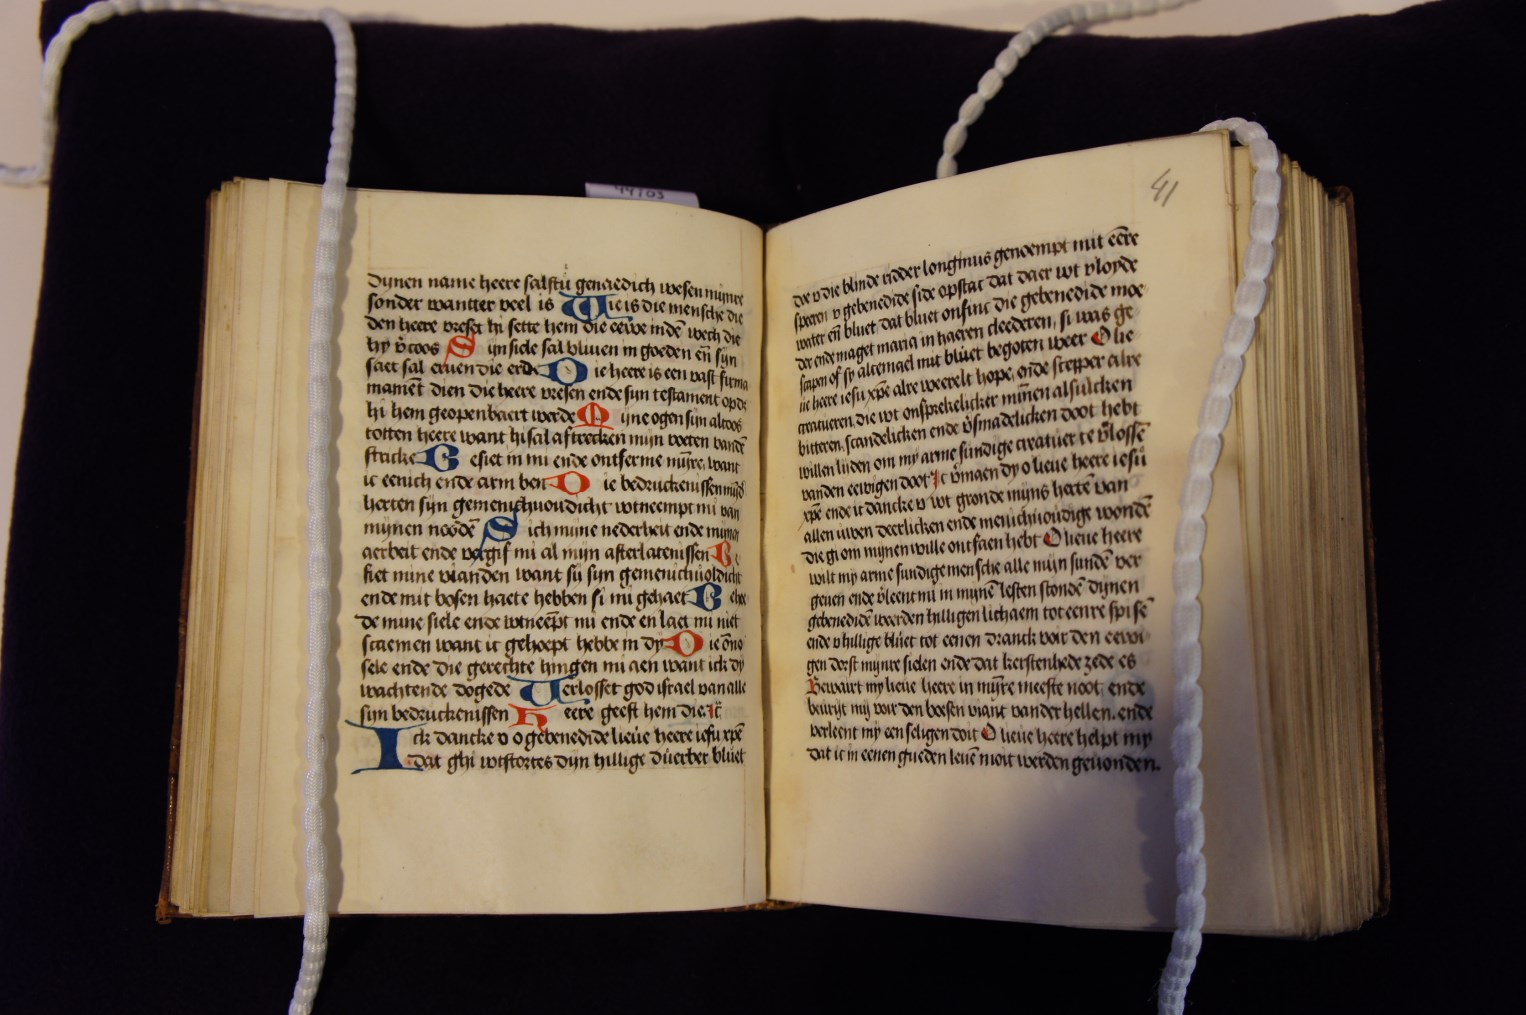 44/03
dynen name heere salstu genaedich wesen mynre
sonder wantter veel is Wie is die mensche die
den heere vreset hi sette hem die eewe inden wech die
hy v̄coos Sijn siele sal bliuen in goeden en̄ sijn
saet sal eruen die erde Die heere is een vast firma
mamēt dien die heere vresen ende sijn testament op dz
hi hem geopenbaert werde Mijne ogen sijn altoos
totten heere want hi sal aftrecken mijn voeten vandē
stricke Besiet in mi ende ontferme mijre want
ic eenich ende arm ben Die bedruckenissen mijns
herten sijn gemenichuoudicht wtneempt mi van
mijnen noodē Sich mijne nederheit ende mijnen
aerbeit ende vergif mi al mijn afterlatenissen Be
siet mine vianden want si sijn gemenichuoldicht
ende mit bosen haete hebben si mi gehaet Behoe
de mine siele ende wtneēpt mi ende en laet mi niet
scaemen want ic gehoept hebbe in dy Die ōno
sele ende die gerechte hingen mi aen want ick dy
wachtende dogede Verlosset god israel van alle
sijn bedruckenissen Heere geest hem die. ic̄
Ick dancke v o gebenedide lieue heere iesu xp̄e
dat ghi wtstortes dijn hillige duerber bluet
41
doe v die blinde ridder longinus genoempt mit eēre
speren v gebenedide side opstac dat daer wt vloyde
water en̄ bluet, dat bluet onfinc die gebenedide moe
der ende maget maria in haeren cleederen, si was ge
scapen of sy altemael mit bluet begoten weer O lie
ue heere iesu xp̄e alre weerelt hope, ende scepper alre
creatueren, die wt onsprekelicker minnen alsulcken
bitteren, scandelicken ende v̄smadelicken doot hebt
willen liden om my arme sundige creatuer te v̄lossē
vanden eewigen doot Ic v̄maen dy o lieue heere iesu
xp̄e ende ic dancke v wt gronde mijns hertē van
allen uwen deerlicken ende menichuoudige wondē
die gi om mijnen wille ontfaen hebt O lieue heere
wilt my arme sundige mensche alle mijn sundē ver
geuen ende v̄leent mi in mijnē lesten stondē dijnen
gebenedidē weerden hilligen lichaem tot eenre spisē
ende v hillige bluet tot eenen dranck voir den eewi
gen dorst mijnre sielen ende dat kerstenhede zede es
Bewaert my lieue heere in mijre meeste noot, ende
beurijt mij voir den boesen viant vander hellen. ende
verleent my een seligen doit O lieue heere helpt my
dat ic in eenen gueden leuē moit werden geuonden.